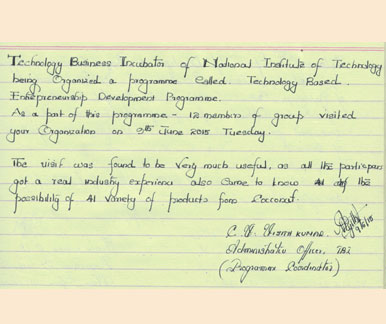 Technology Business Incubator of National Institute of Technology
being Organized a programme Called Technology Based
Entrepreneurship Development Programme.
As a part of this programme - 12 members of group visited
your Organization on 9th June 2015 Tuesday.
The visit was found to be very much useful, as all the participans
got a real industry experience also came to know of the
possibility of variety of products from Coconut.
KUMAR.
Administrative Officer, TBI
(Programme Coordinator)